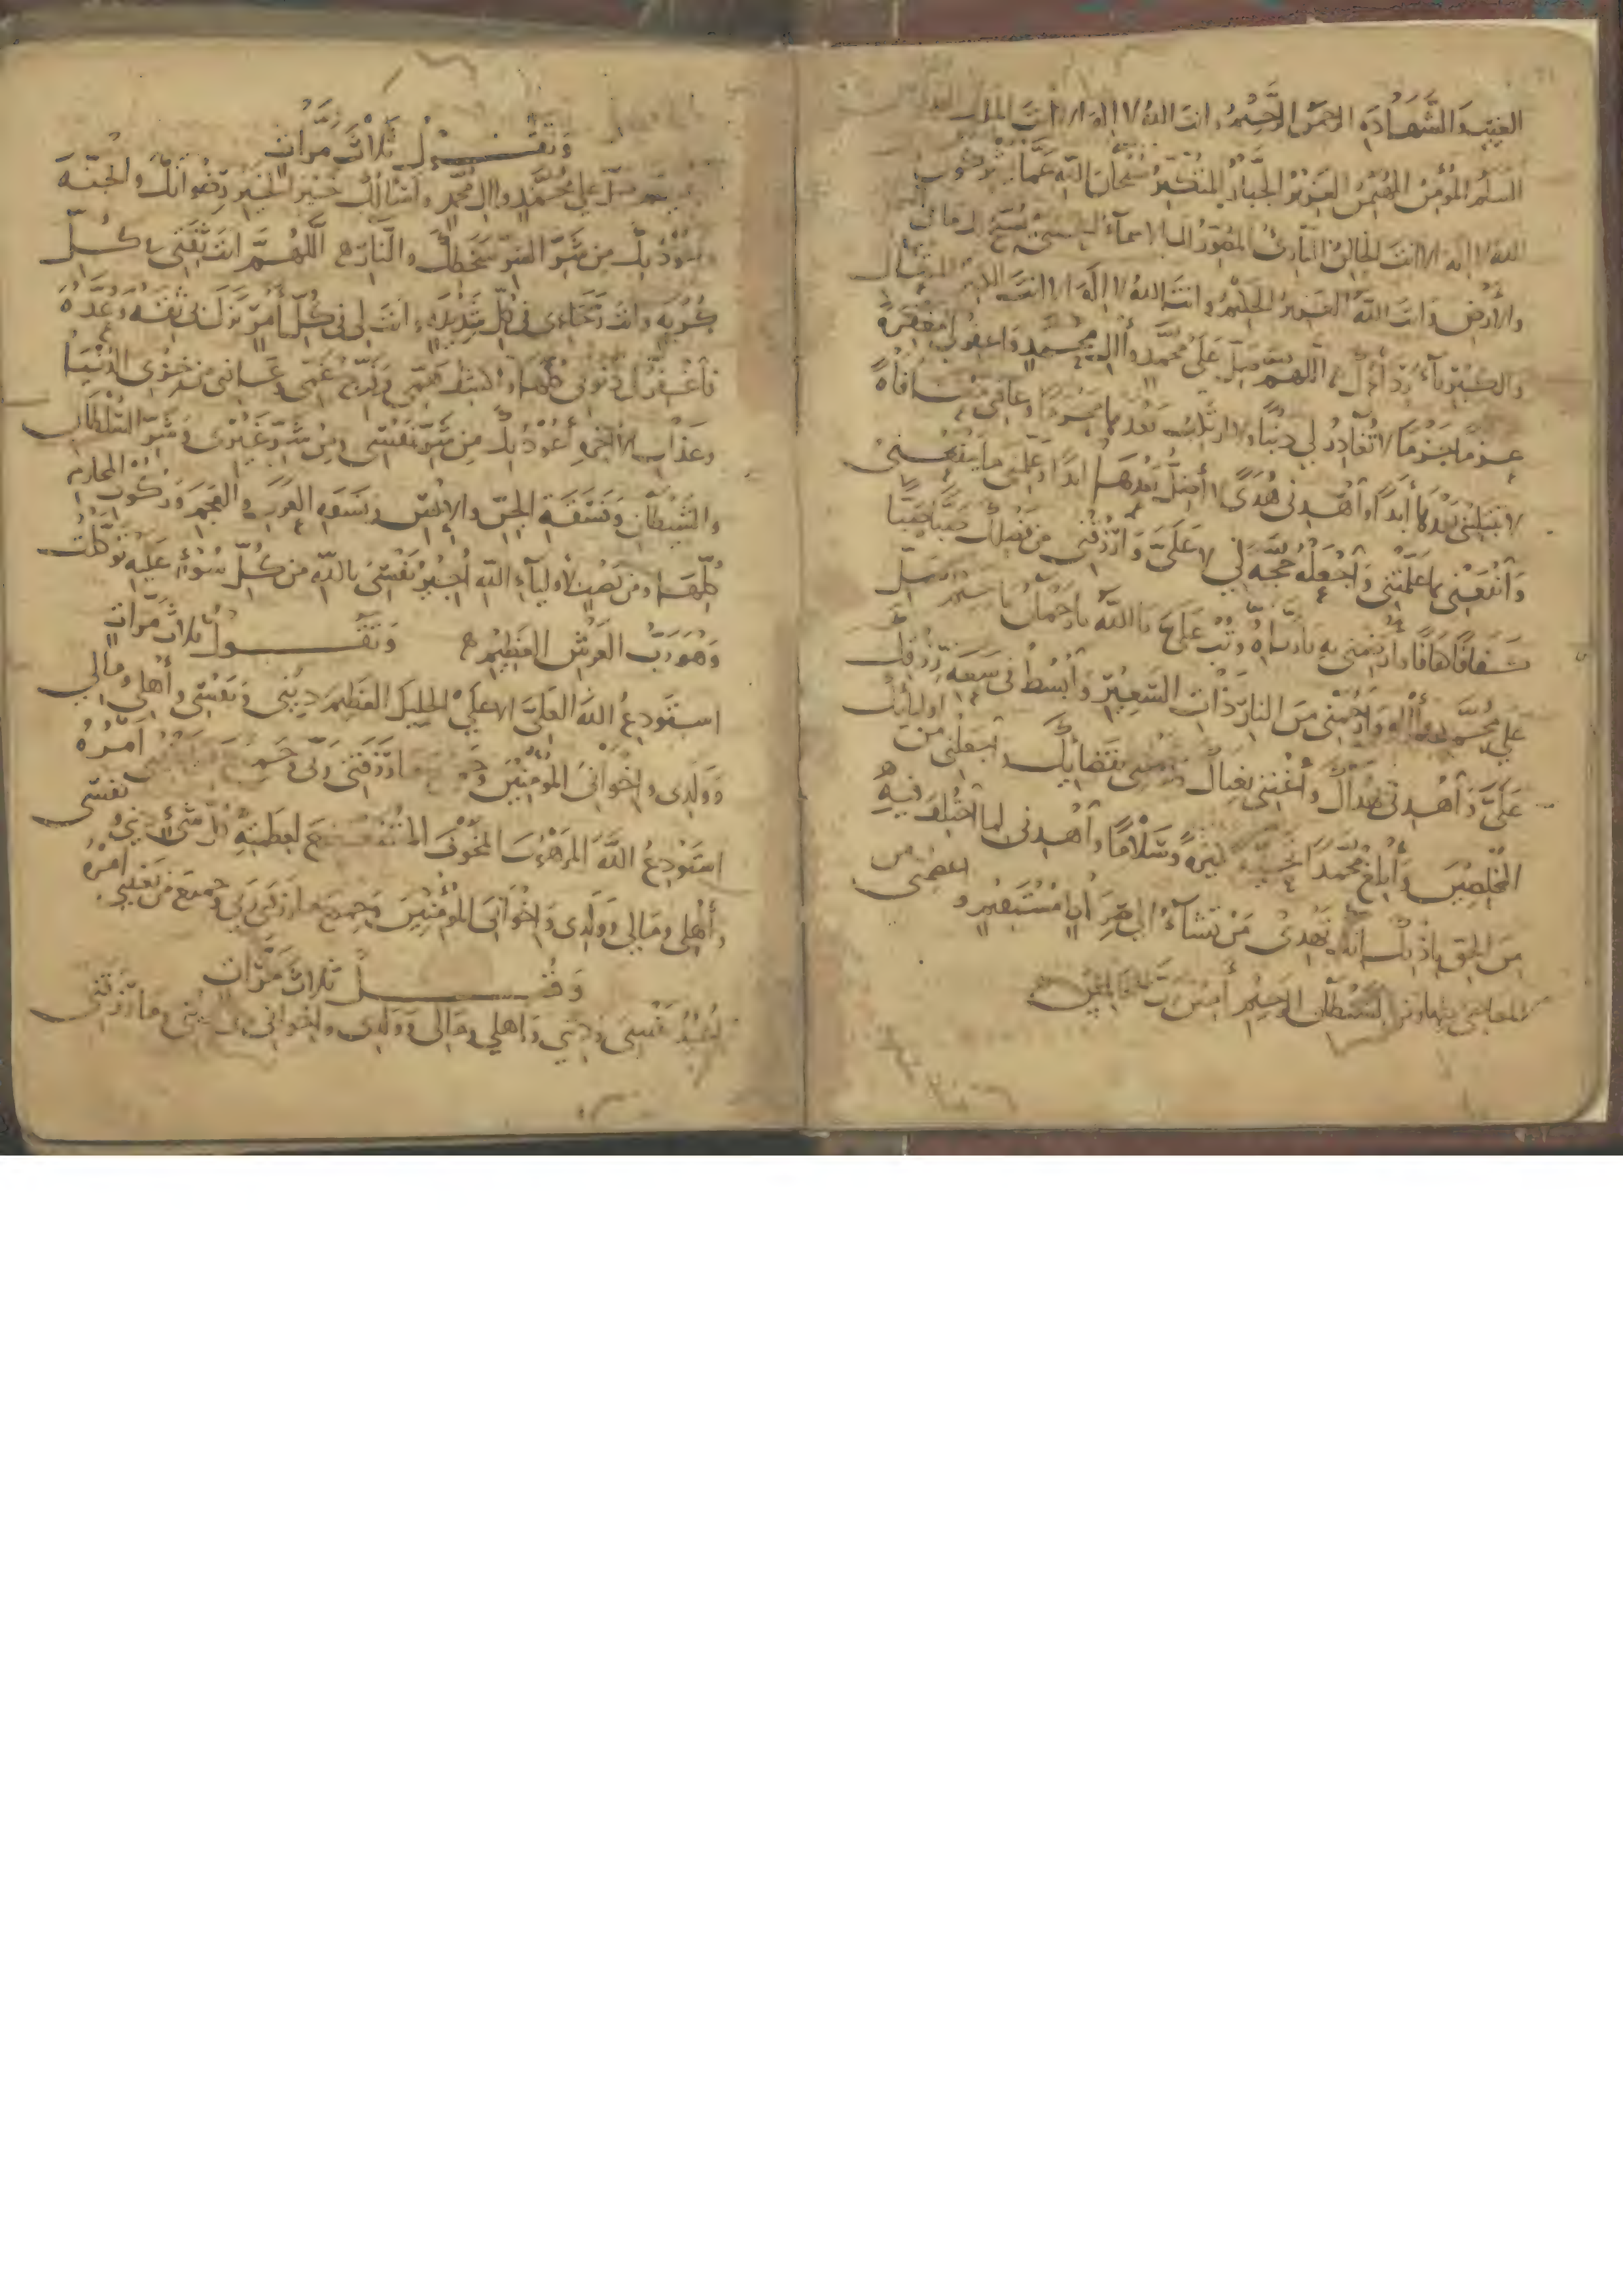 الغيب والشهادة الرحمن الرحيم وانت الله لا اله الا انت الملك القدوس
السلم المؤمن المهيمن العزيز الجبار المتكبر سبحان الله عما يشركون
الله لا اله الا انت الخالق البارئ المصور لك الاسماء الحسنى يسبح لك ما في
والأرض وانت الله العزيز الحكيم وانت الله لا اله الا انت الكبير المتعال
والكبرياء رداؤك اللهم صل على محمد وآل محمد واغفر لي مغفرة
عزما جزما لا تغادر لي ذنبا ولا ارتكب بعدها محرما وعافني معافاة
لا تبتليني بعدها أبدا واهدني هدى لا أضل بعده ابدا وعلمني ما ينفعني
وانفعني بما علمتني واجعله حجة لي لا علي وارزقني من فضلك صبا صبا
كفافا وارضني به يا رباه وتب علي يا الله يا رحمن يا رحيم صل
على محمد وآله وارحمني من النار ذات السعير وابسط في سعة رزقك
علي واهدني بهداك وأغنني بغناك بقضائك واجعلني من اوليائك
المخلصين وأبلغ محمدا تحية كثيرة وسلاما واهدني لما اختلف فيه
من الحق باذنك انك تهدي من تشاء الى صراط مستقيم واعصمني من
المعاصي ومن الشيطان الرجيم آمين رب العالمين
وتقول ثلاث مرات
صل على محمد وال محمد واسألك خير الخير رضوانك والجنة
واعوذ بك من شر الشر سخطك والنار اللهم انت ثقتي في كل
كربة وانت رجائي في كل شديدة وانت لي في كل أمر نزل بي ثقة وعدة
فاغفر لي ذنوبي كلها واكشف همي وفرج غمي وعافني من خزي الدنيا
وعذاب الآخرة أعوذ بك من شر نفسي ومن شر غيري وشر السلطان
والشيطان وفسقة الجن والإنس وفسقة العرب والعجم وركوب المحارم
كلها ومن نصب لأولياء الله أجير نفسي بالله من كل سوء عليه توكلت
وهو رب العرش العظيم وتقول ثلاث مرات
استودع الله العلي الاعلى الجليل العظيم ديني ونفسي وأهلي ومالي
وولدي واخواني المؤمنين وجميع ما رزقني ربي وجميع من يعنيني أمره
استودع الله المرهوب المخوف المتضعضع لعظمته كل شيء ديني ونفسي
وأهلي ومالي وولدي واخواني المؤمنين وجميع ما رزقني ربي وجميع من يعنيني امره
وقل ثلاث مرات
أعيذ نفسي وديني واهلي ومالي وولدي واخواني في ديني وما رزقني